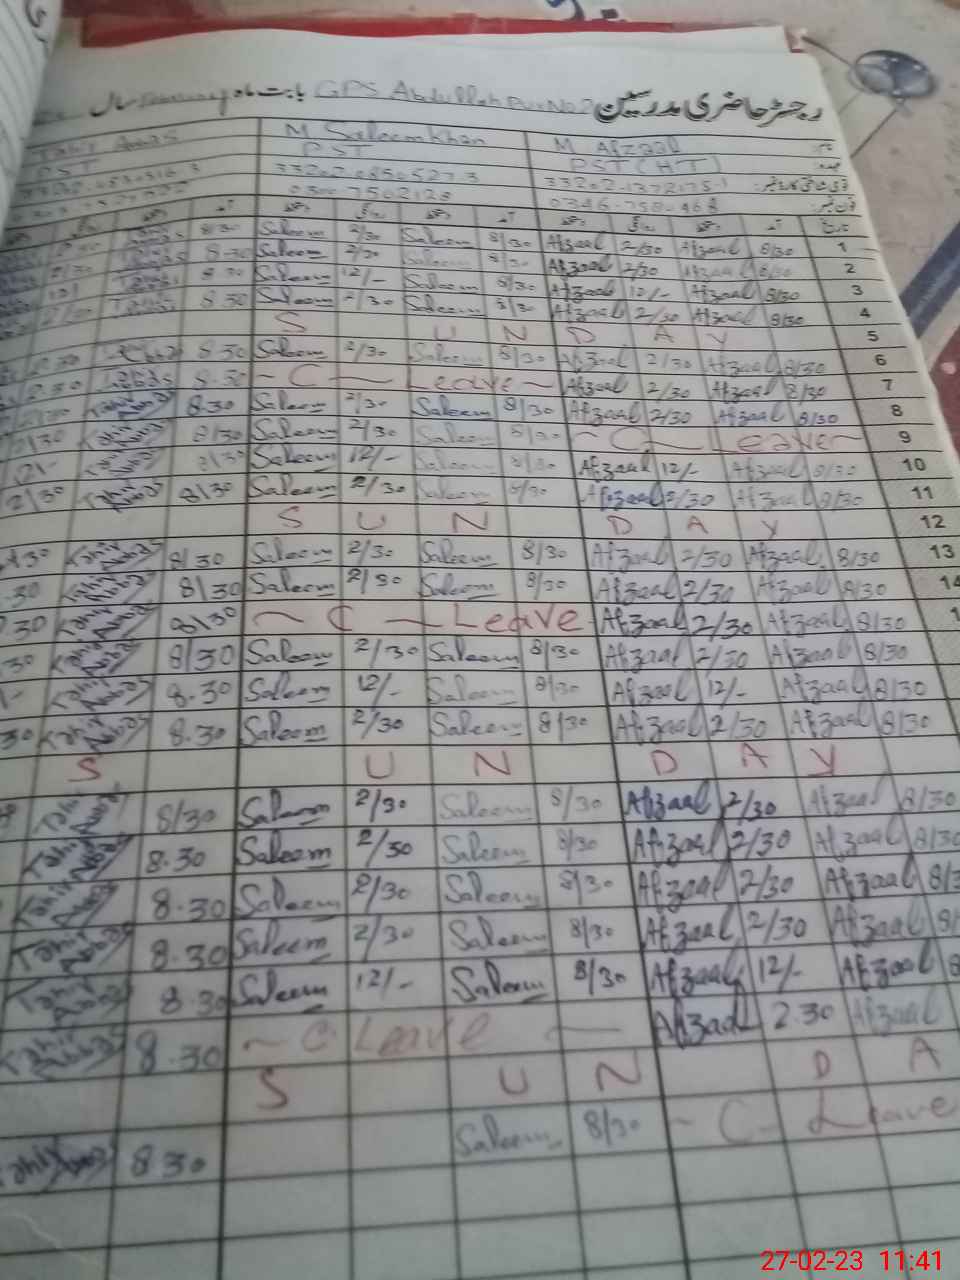 رجسٹر حاضری مدرسین GPS Abdullah Pur No 2 بابت ماہ February سال
نام: M Afzaal M Saleem Khan Tahir Abbas
عہدہ: PST (HT) PST PST
قومی شناختی کارڈ نمبر: 33202-1372175-1 33202.0850527.3
فون نمبر: 0300.7502128
تاریخ آمد دستخط روانگی دستخط آمد دستخط روانگی دستخط آمد دستخط روانگی
8/30 Saleem 2/30 Saleem 8/30 Afzaal 2/30 Afzaal 8/30 1
8.30 Saleem 2/30 Saleem 8/30 Afzaal 2/30 Afzaal 8/30 2
8.30 Saleem 12/- Saleem 8/30 Afzaal 12/- Afzaal 8/30 3
8.30 Saleem 2/30 Saleem 8/30 Afzaal 2/30 Afzaal 8/30 4
S U N D A Y 5
8.30 Saleem 2/30 Saleem 8/30 Afzaal 2/30 Afzaal 8/30 6
8.30 ~ C — Leave ~ Afzaal 2/30 Afzaal 8/30 7
Tahir Abbas 8.30 Saleem 2/30 Saleem 8/30 Afzaal 2/30 Afzaal 8/30 8
2/30 Tahir Abbas 8/30 Saleem 2/30 Saleem 8/30 ~ C — Leave ~ 9
12/- Tahir Abbas 8/30 Saleem 12/- Saleem 8/30 Afzaal 12/- Afzaal 8/30 10
2/30 Tahir Abbas 8/30 Saleem 2/30 Saleem 8/30 Afzaal 2/30 Afzaal 8/30 11
S U N D A Y 12
Tahir Abbas 8/30 Saleem 2/30 Saleem 8/30 Afzaal 2/30 Afzaal 8/30 13
30 Tahir Abbas 8/30 Saleem 2/30 Saleem 8/30 Afzaal 2/30 Afzaal 8/30 14
30 Tahir Abbas 8/30 ~ C — Leave Afzaal 2/30 Afzaal 8/30 1
30 Tahir Abbas 8/30 Saleem 2/30 Saleem 8/30 Afzaal 2/30 Afzaal 8/30
Tahir Abbas 8.30 Saleem 12/- Saleem 8/30 Afzaal 12/- Afzaal 8/30
30 Tahir Abbas 8.30 Saleem 2/30 Saleem 8/30 Afzaal 2/30 Afzaal 8/30
S U N D A Y
Tahir Abbas 8/30 Saleem 2/30 Saleem 8/30 Afzaal 2/30 Afzaal 8/30
Tahir Abbas 8.30 Saleem 2/30 Saleem 8/30 Afzaal 2/30 Afzaal 8/30
Tahir Abbas 8.30 Saleem 2/30 Saleem 8/30 Afzaal 2/30 Afzaal 8/3
Tahir Abbas 8.30 Saleem 2/30 Saleem 8/30 Afzaal 2/30 Afzaal 8/
Tahir Abbas 8.30 Saleem 12/- Saleem 8/30 Afzaal 12/- Afzaal 8
Tahir Abbas 8.30 ~ C Leave — Afzaal 2.30 Afzaal
S U N D A
Tahir Abbas 8 30 Saleem 8/30 ~ C — Leave
27-02-23 11:41